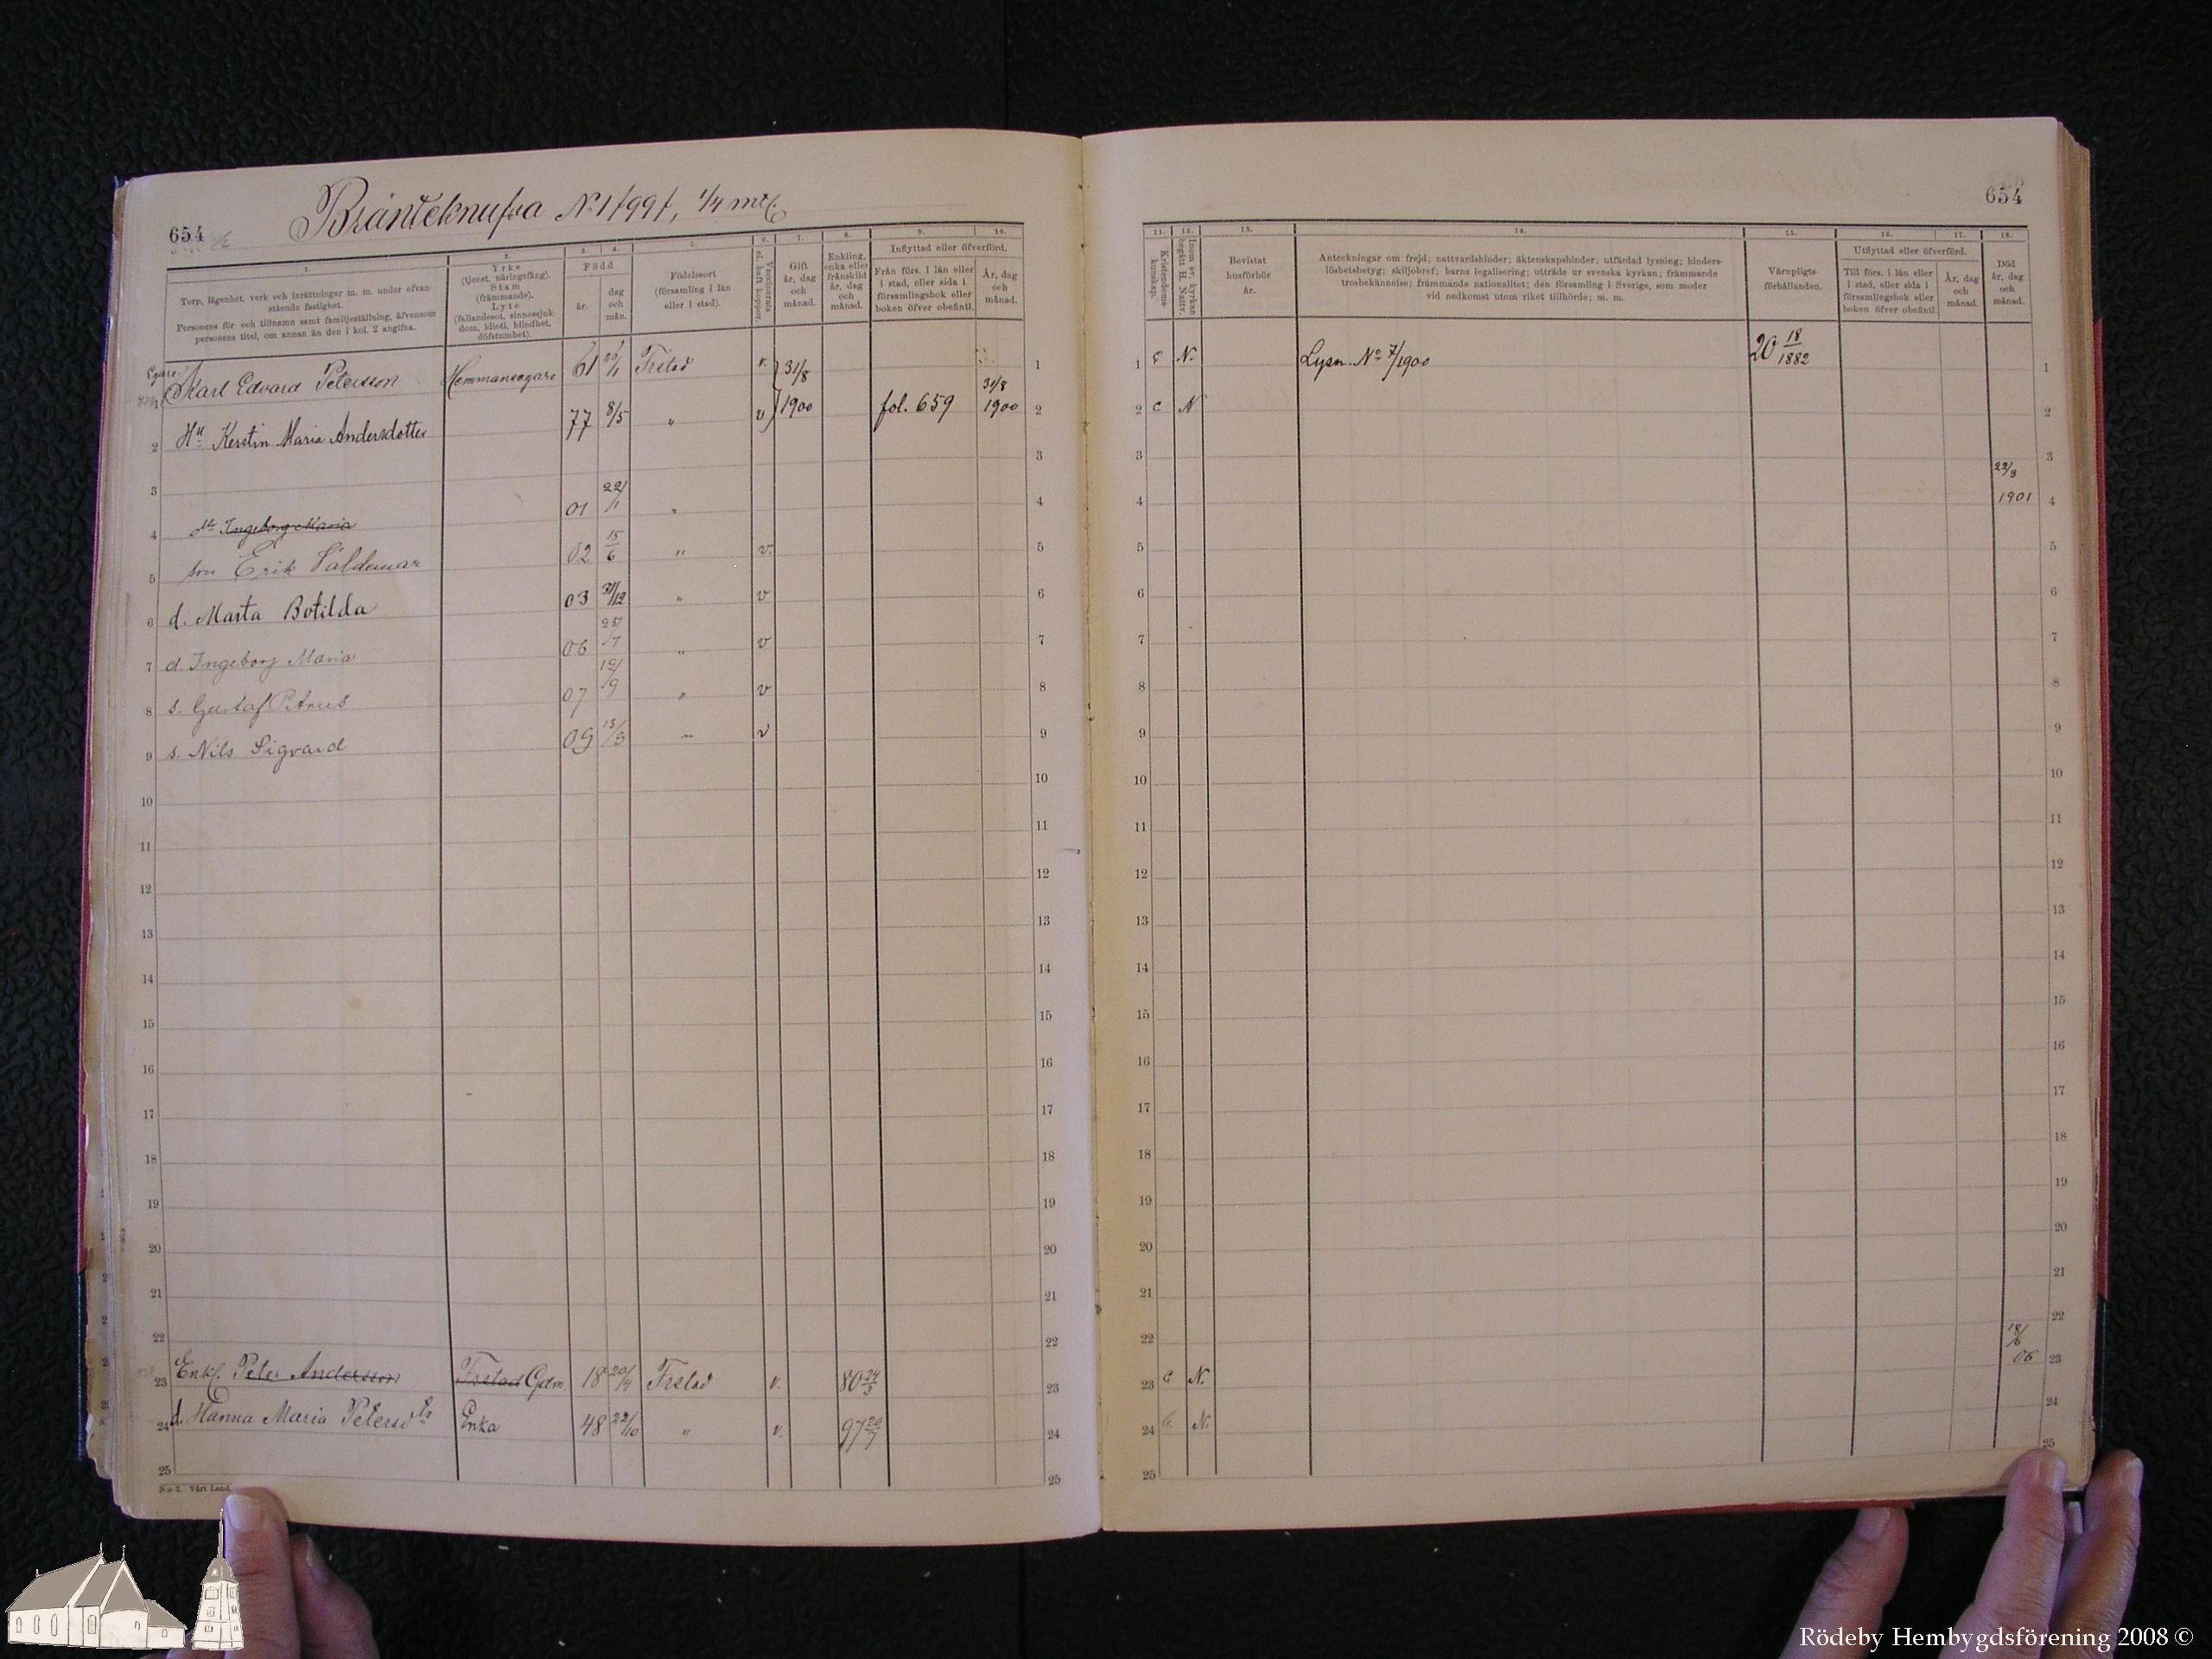 654
Bränteknufva N:1 /99/, 1/4 mtl.
1.
Torp, lägenhet, verk och inrättningar m. m. under ofvan-
stående fastighet.
Personens för- och tillnamn samt familjeställning, äfvensom
personens titel, om annan än den i kol. 2 angifna.
2.
Yrke
(tjenst, näringsfång).
Stam
(främmande).
Lyte
(fallandesot, sinnessjuk-
dom, idioti, blindhet,
döfstumhet).
3. 4.
Född
år.
dag
och
mån.
5.
Födelseort
(församling i län
eller i stad).
6.
Vaccinerats
el. haft koppor.
7.
Gift
år, dag
och
månad.
8.
Enkling,
enka eller
frånskild
år, dag
och
månad.
9. 10.
Inflyttad eller öfverförd.
Från förs. i län eller
i stad, eller sida i
församlingsbok eller
boken öfver obefintl.
År, dag
och
månad.
Egare
1 Karl Edvard Petersson Hemmansegare 61 Frstad v. 31/8 1
2 Hu Kerstin Maria Andersdotter 77 8/5 " v 1900 fol. 659 31/8 1900 2
3 3
4 dr Ingeborg Maria 01 22/1 " 4
5 son Erik Valdemar 02 15/6 " v. 5
6 d. Marta Botilda 03 31/12 " v 6
7 d. Ingeborg Maria 06 " v 7
8 s. Gustaf Petrus 07 " v 8
9 s. Nils Sigvard 09 " v 9
10 10
11 11
12 12
13 13
14 14
15 15
16 16
17 17
18 18
19 19
20 20
21 21
22 22
23 Enkl. Peter Andersson 18 20/4 Frstad v. 80 23
24 d. Hanna Maria Petersdtr Enka 48 22/10 " v. 97 24
25 25
N:o 2. Vårt Land.
654
11.
Kristendoms-
kunskap.
12.
Inom sv. kyrkan
begått H. Nattv.
13.
Bevistat
husförhör
år.
14.
Anteckningar om frejd; nattvardshinder; äktenskapshinder; utfärdad lysning; hinders-
löshetsbetyg; skiljobref; barns legalisering; utträde ur svenska kyrkan; främmande
trosbekännelse; främmande nationalitet; den församling i Sverige, som moder
vid nedkomst utom riket tillhörde; m. m.
15.
Värnpligts-
förhållanden.
16. 17.
Utflyttad eller öfverförd.
Till förs. i län eller
i stad, eller sida i
församlingsbok eller
boken öfver obefintl.
År, dag
och
månad.
18.
Död
år, dag
och
månad.
1 N. Lysn. No 7/1900 20 18/1882 1
2 c N 2
3 3
4 22/3 1901 4
5 5
6 6
7 7
8 8
9 9
10 10
11 11
12 12
13 13
14 14
15 15
16 16
17 17
18 18
19 19
20 20
21 21
22 22
23 c N. 18/6 06 23
24 N. 24
25 25
Rödeby Hembygdsförening 2008 ©